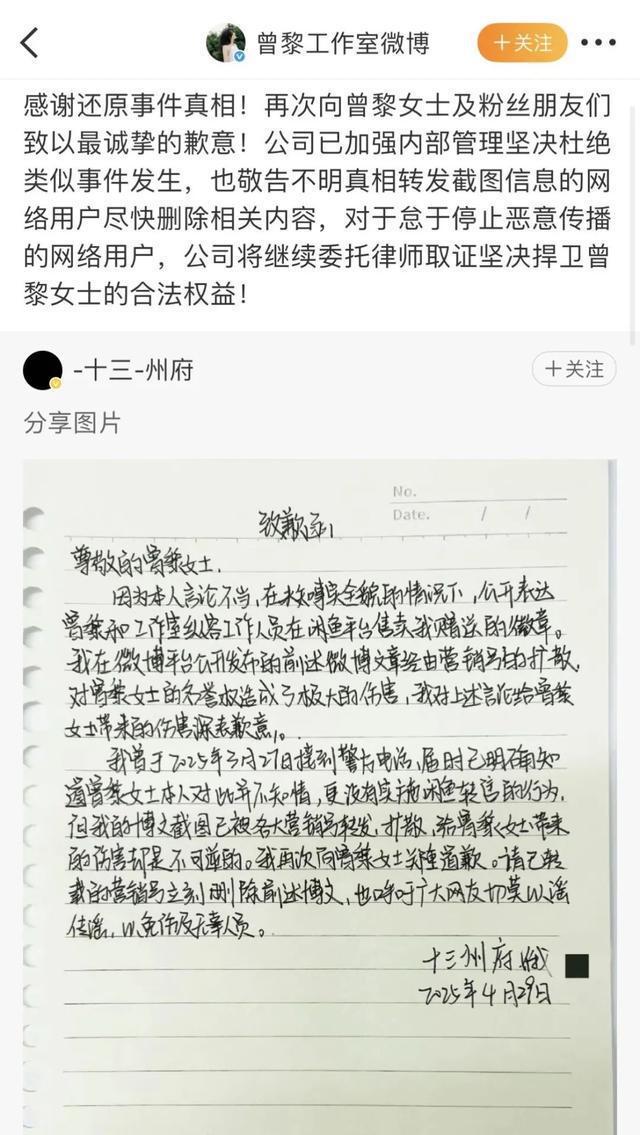 曾黎工作室微博
＋关注
感谢还原事件真相！再次向曾黎女士及粉丝朋友们
致以最诚挚的歉意！公司已加强内部管理坚决杜绝
类似事件发生，也敬告不明真相转发截图信息的网
络用户尽快删除相关内容，对于怠于停止恶意传播
的网络用户，公司将继续委托律师取证坚决捍卫曾
黎女士的合法权益！
-十三-州府
＋关注
分享图片
No.
Date. / /
致歉函
尊敬的曾黎女士.
因为本人言论不当，在未知事实全貌的情况下，公开表达
曾黎和工作室纵容工作人员在闲鱼平台售卖我赠送的徽章。
我在微博平台公开发布的前述微博文章经由营销号的扩散，
对曾黎女士的名誉权造成了极大的伤害，我对上述言论给曾黎
女士带来的伤害深表歉意。
我曾于2025年3月27日接到警方电话，届时已明确知
道曾黎女士本人对此并不知情，更没有实施闲鱼转售的行为，
但我的博文截图已被各大营销号转发，扩散，给曾黎女士带来
的伤害却是不可逆的。我再次向曾黎女士郑重道歉。请已转
载的营销号立刻删除前述博文，也呼吁广大网友切莫以谣
传谣，以免伤及无辜人员。
十三州府
2025年4月29日